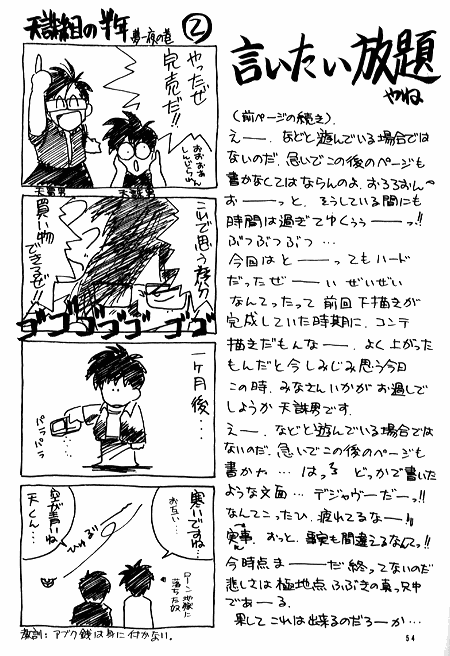 天誅組の半年
夢一夜の巻
②
やったぜ
完売だ!!
おおおぉ
しんじられん
天誅男
これで思う存分
買い物
できるぜ!!
ゴゴゴゴゴゴゴ
一ヶ月後…
パラパラ
寒いですね…
お互い…
空が青いね
天くん…
ひゅるる
ローン地獄に
落ちた奴
教訓：アブク銭は身に付かない。
言いたい放題
やね
(前ページの続き).
えー——. などと遊んでいる場合では
ないのだ. 急いでこの後のページも
書かなくてはならんのよ.おろろおん〜
おー——っと、そうしている間にも
時間は過ぎてゆくぅぅ——っ!!
ぶつぶつぶつ…
今回はと———ってもハード
だったぜ——い ぜいぜい
なんてったって 前回 下描きが
完成していた時期に、コンテ
描きだもんなー——. よく上がった
もんだと今しみじみ思う今日
この時、みなさんいかがお過しで
しょうか 天誅男です.
えー—. などと遊んでいる場合では
ないのだ. 急いでこの後のページも
書かね…はっ どっかで書いた
ような文面… デジャヴーだーっ!!
なんてこったひ、疲れてるなー—!!
実事. おっと、事実も間違えるなんてっ!!
今時点ま———だ終ってないのだ
悲しさは極地点ふぶきの真っ只中
であ——る.
果してこれは出来るのだろーか…
54